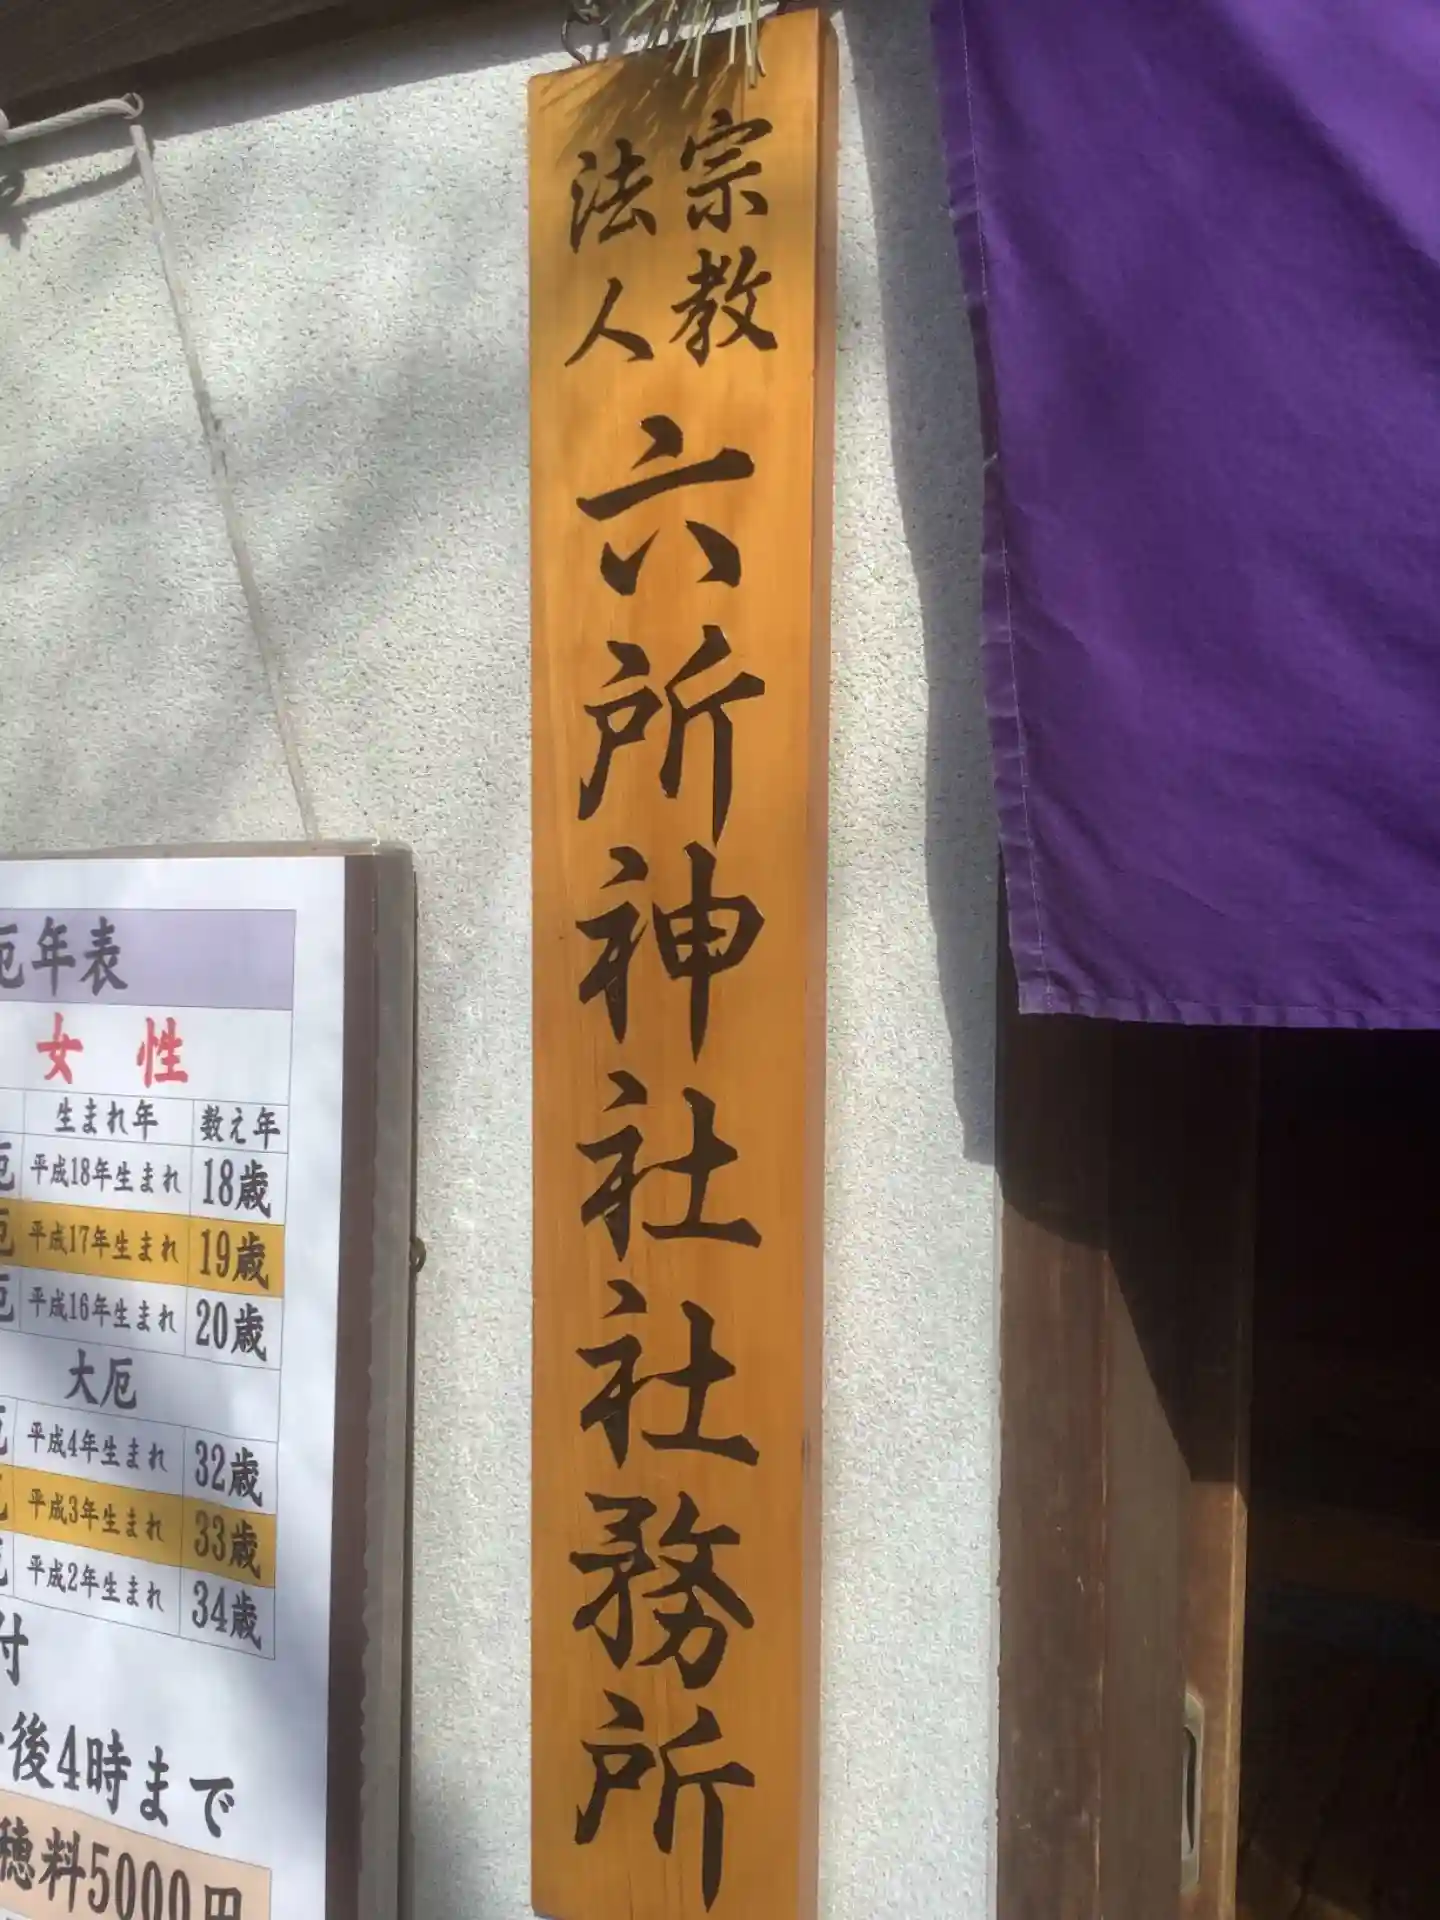 宗教
法人
六所神社社務所
厄年表
女 性
生まれ年 数え年
平成18年生まれ 18歳
平成17年生まれ 19歳
平成16年生まれ 20歳
大厄
平成4年生まれ 32歳
平成3年生まれ 33歳
平成2年生まれ 34歳
付
後4時まで
穂料5000円